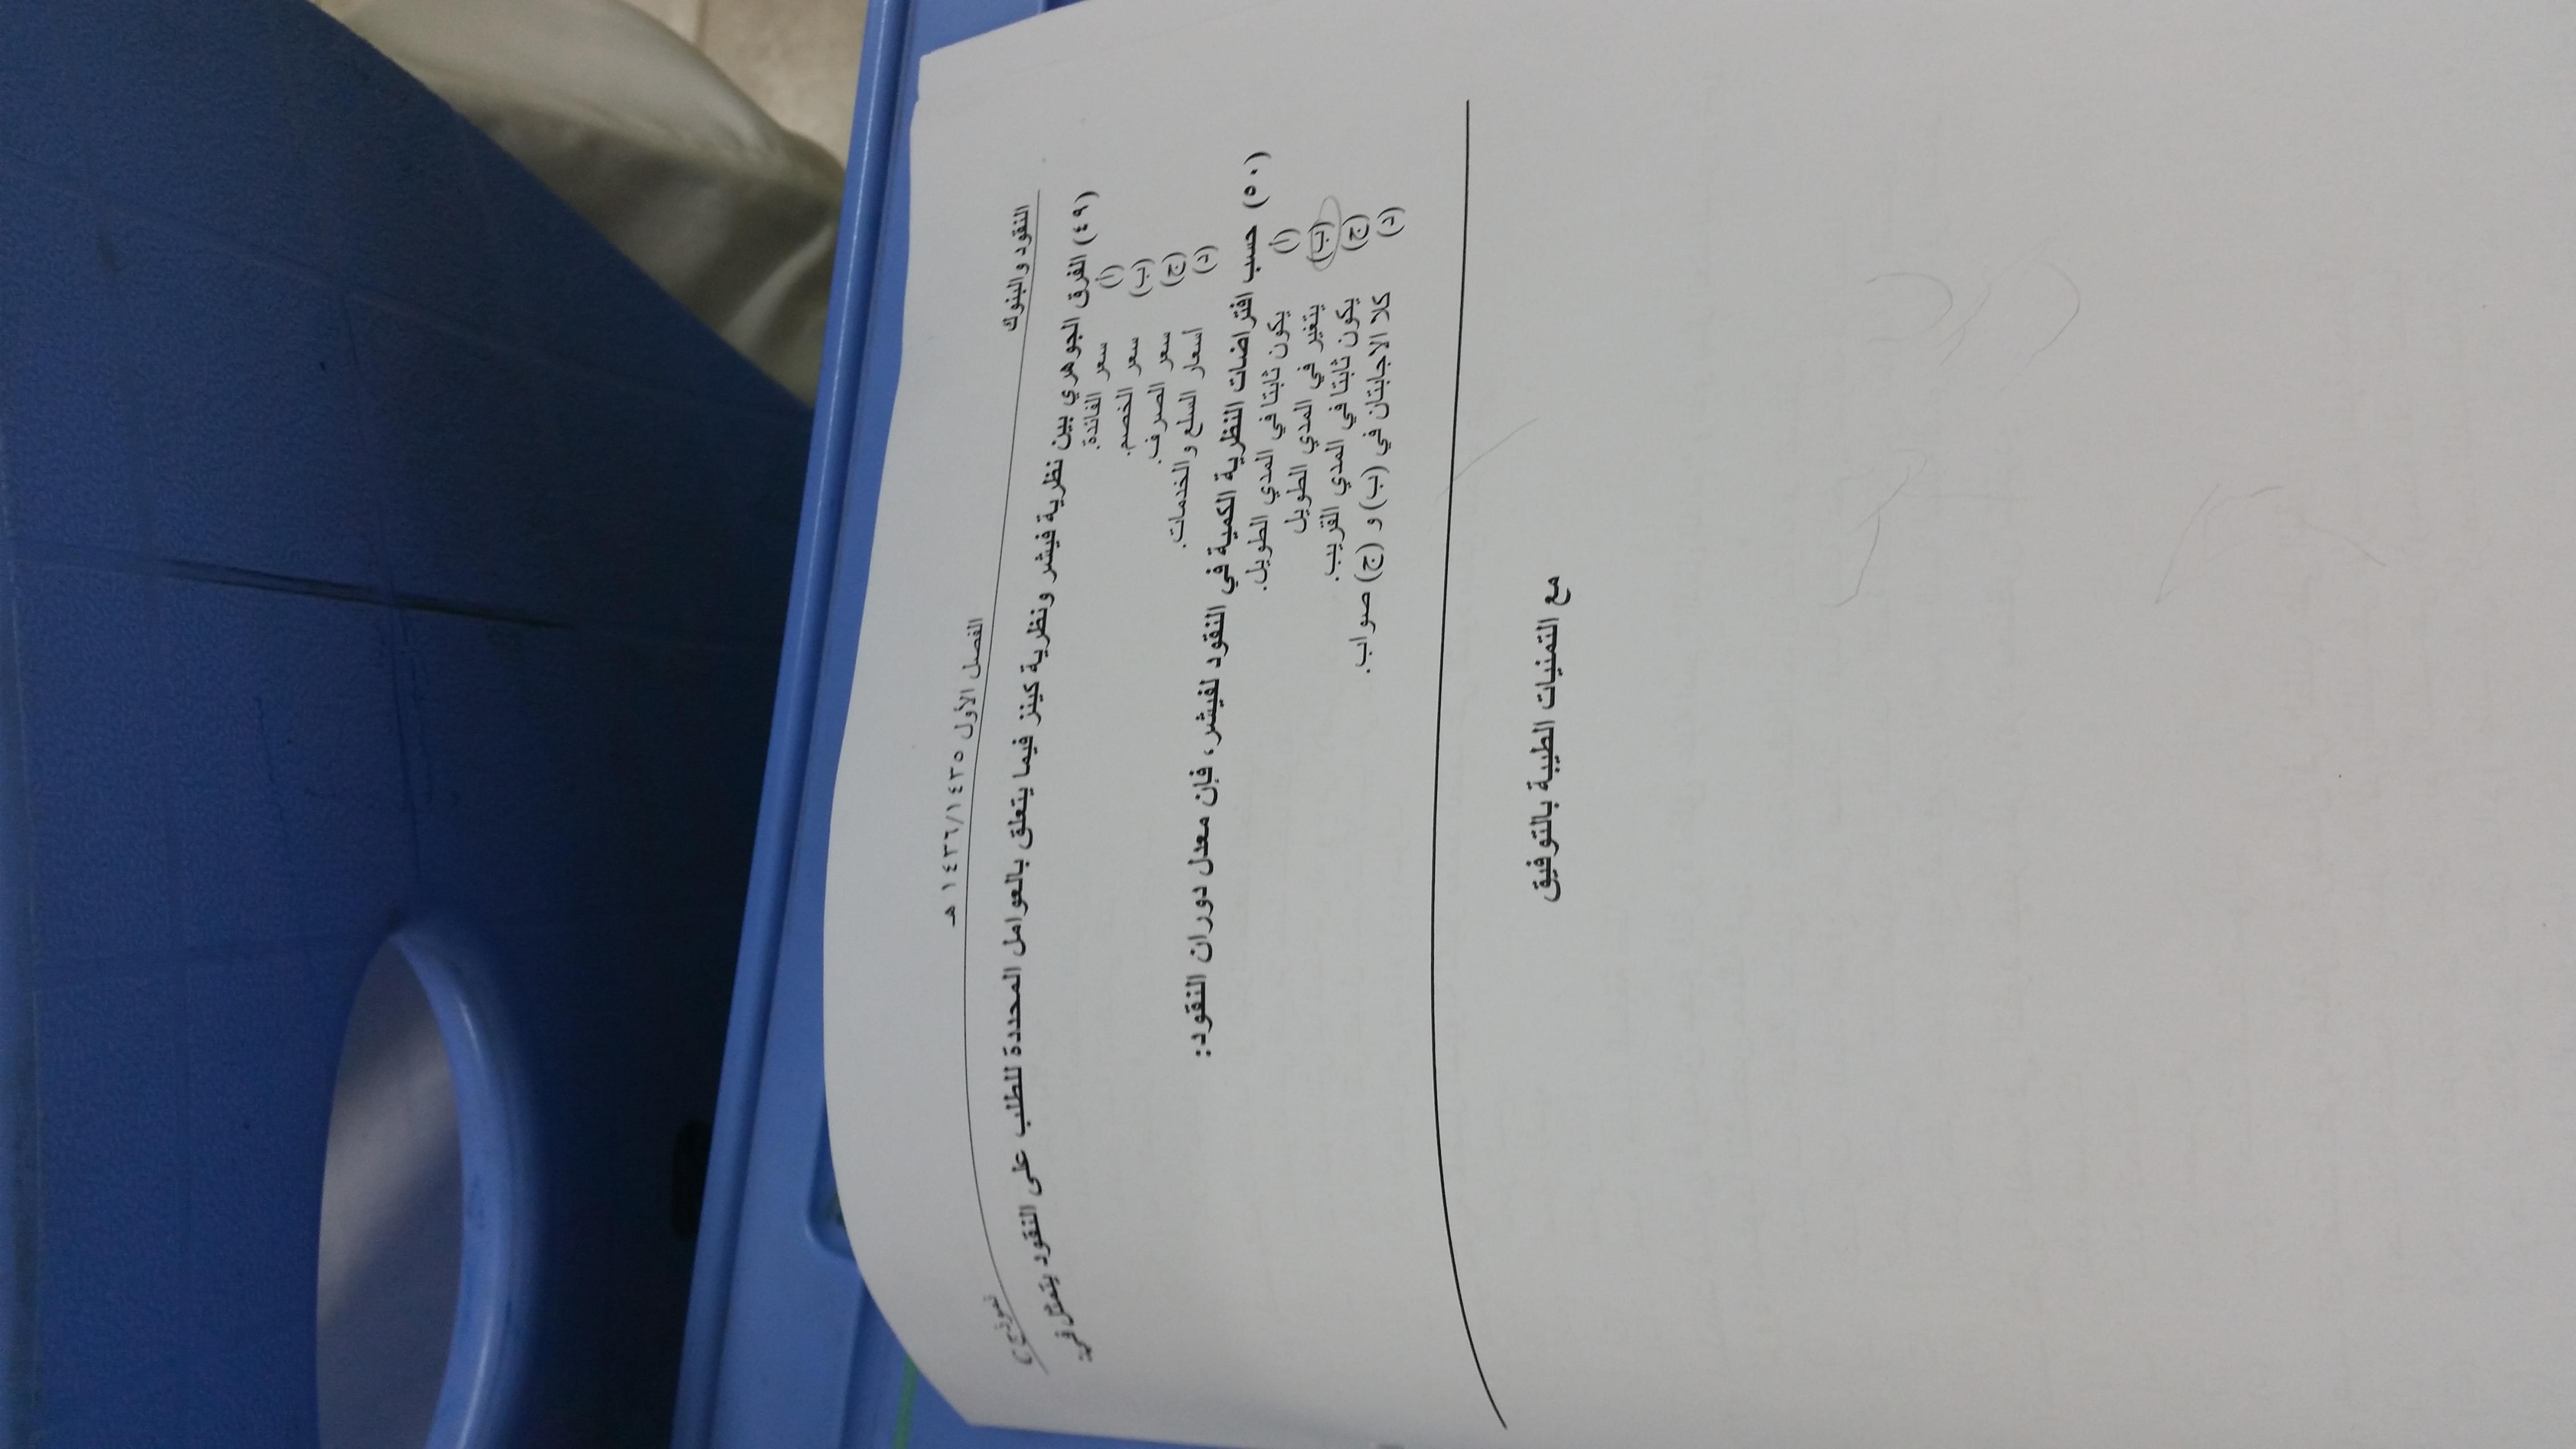 النقود والبنوك
الفصل الأول ١٤٣٦/١٤٣٥ هـ
نموذج ج
(٤٩) الفرق الجوهري بين نظرية فيشر ونظرية كينز فيما يتعلق بالعوامل المحددة للطلب على النقود يتمثل في:
(أ) سعر الفائدة.
(ب) سعر الخصم.
(ج) سعر الصرف.
(د) أسعار السلع والخدمات.
(٥٠) حسب افتراضات النظرية الكمية في النقود لفيشر، فإن معدل دوران النقود:
(أ) يكون ثابتا في المدي الطويل.
(ب) يتغير في المدي الطويل
(ج) يكون ثابتا في المدي القريب.
(د) كلا الاجابتان في (ب) و (ج) صواب.
مع التمنيات الطيبة بالتوفيق